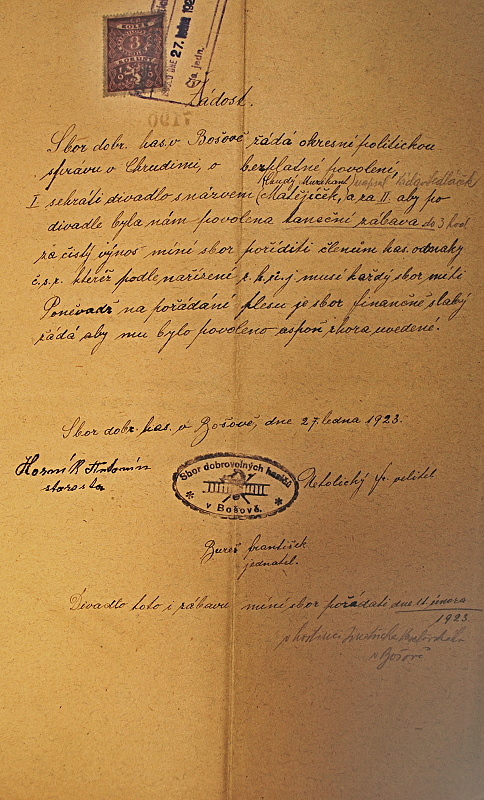 KOLEK
3
KORUNY
27. 192
jedn.
Žádost.
Sbor dobr. has. v Bošově žádá okresní politickou
správu v Chrudimi, o bezplatné povolení,
I sehráti divadlo s názvem (Matějíček, a za II. aby po
divadle byla nám povolena taneční zábava do 3 hod
za čistý výnos míní sbor poříditi členům has. odznaky
č.s.r. kteréž podle nařízení z. h. ú. j musí každý sbor míti
Poněvadž na pořádání plesu je sbor finančně slabý
žádá aby mu bylo povoleno aspoň zhora uvedené.
Sbor dobr. has. v Bošově, dne 27. ledna 1923.
Horník Antonín
starosta
Sbor dobrovolných hasičů
v Bošově.
velitel
Bureš František
jednatel.
Divadlo toto i zábavu míní sbor pořádati dne 11 února
1923
v hostinci
v Bošově